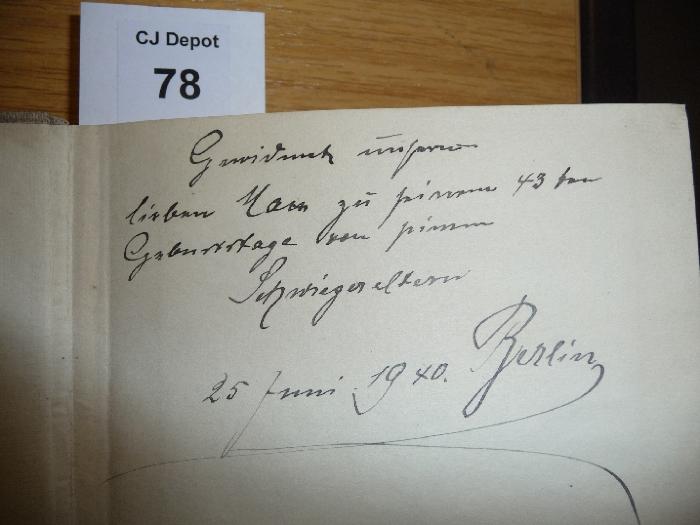 CJ Depot
78
Gewidmet unserem
lieben zu seinem 43 ten
Geburtstage von seinen
Schwiegereltern
25 Juni 1940. Berlin